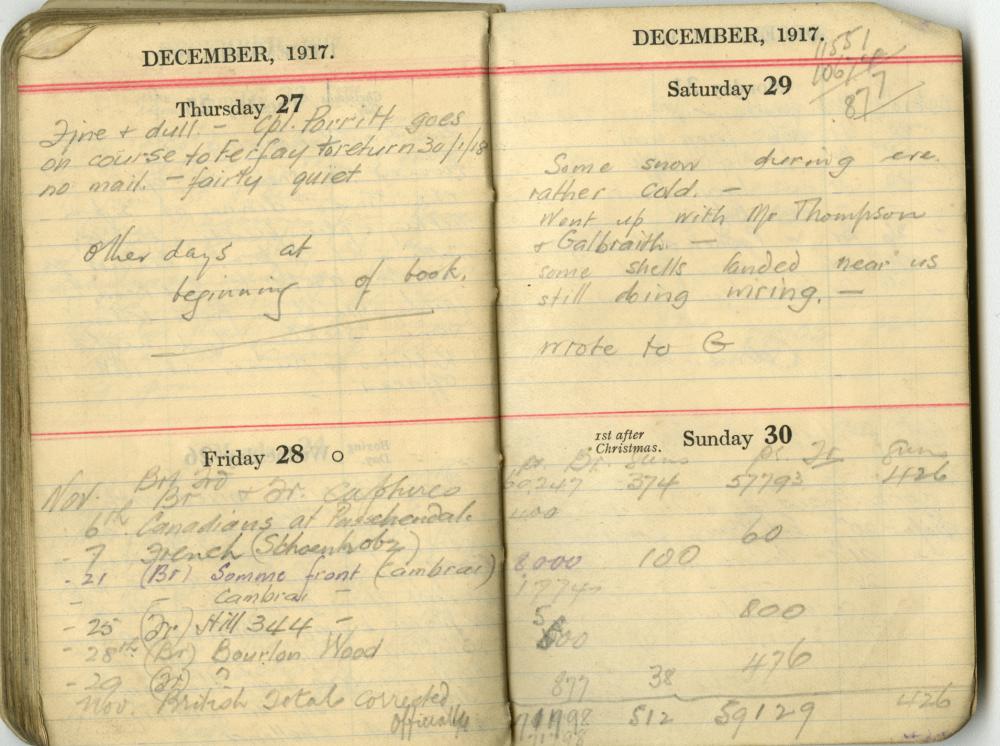 DECEMBER, 1917.
Thursday 27
Fine & dull. - Cpl. Porritt goes
on course to Ferfay to return 30/1/18
no mail. - fairly quiet
Other days at
beginning of book.
Friday 28
Nov. Br & Fr. Captures
6th Canadians at Passchendale
- 7 French (Schoenholz)
- 21 (Br) Somme front (Cambrai)
- - Cambrai -
- 25 (Fr.) Hill 344 -
- 28th (Br) Bourlon Wood
- 29 (Fr) ?
Nov. British Total corrected
Officially
DECEMBER, 1917.
1551
877
Saturday 29
Some snow during eve.
rather cold. -
Went up with Mr Thompson
& Galbraith. -
some shells landed near us
still doing wiring. -
Wrote to G
1st after
Christmas.
Sunday 30
pr. Br. guns pr. Fr guns
60,247 374 57793 426
400
60
8000 100
1774
800
500
476
877 38
71798 512 59129 426
71798